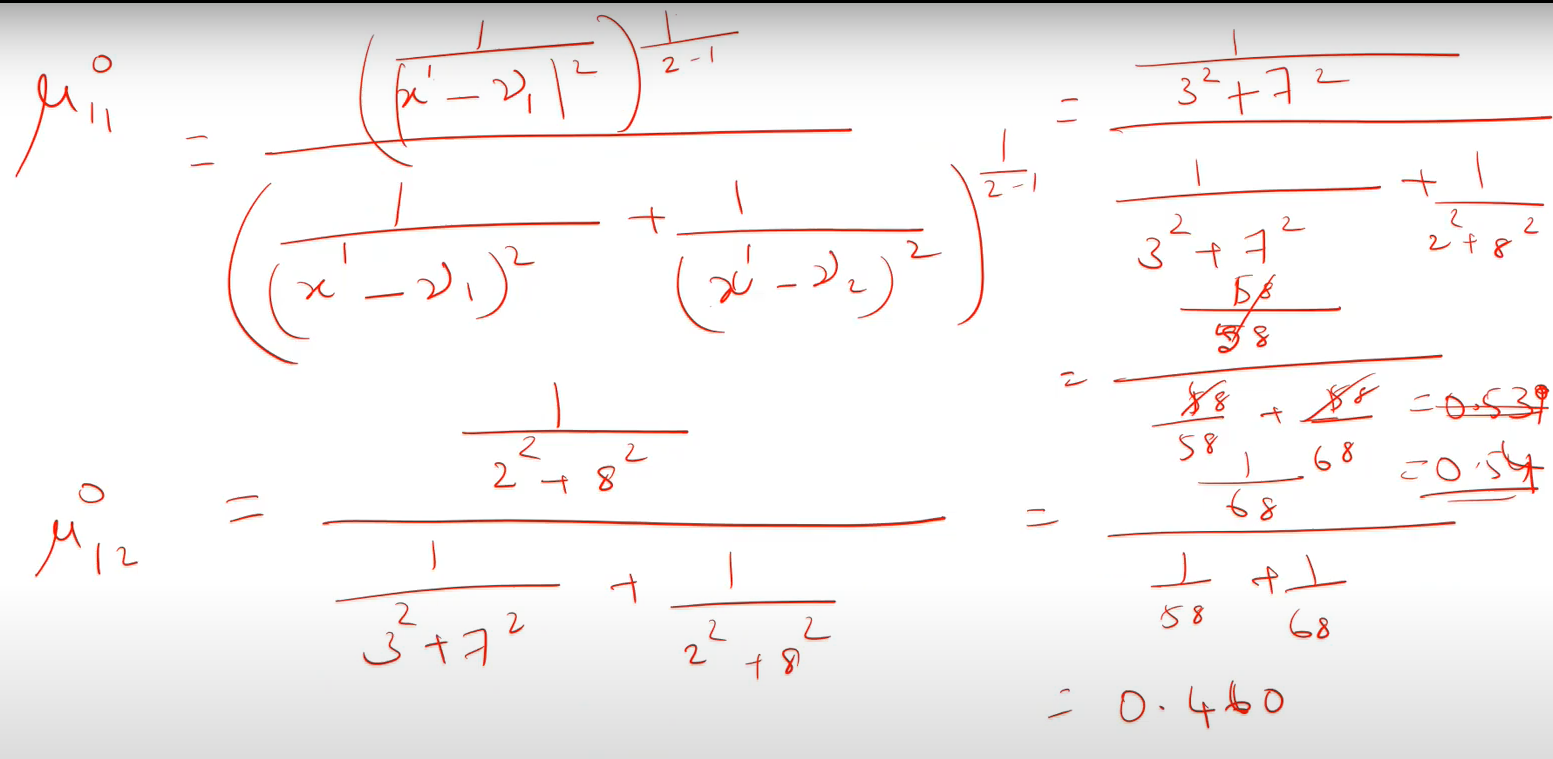 μ₁₁⁰ = (1 / |x¹ − ν₁|²)^(1/(2−1)) / (1/(x¹ − ν₁)² + 1/(x¹ − ν₂)²)^(1/(2−1)) = (1/(3² + 7²)) / (1/(3² + 7²) + 1/(2² + 8²))
= (58/58) / (58/58 + 58/68) = 0.539
= 0.54
μ₁₂⁰ = (1/(2² + 8²)) / (1/(3² + 7²) + 1/(2² + 8²)) = (1/68) / (1/58 + 1/68)
= 0.460